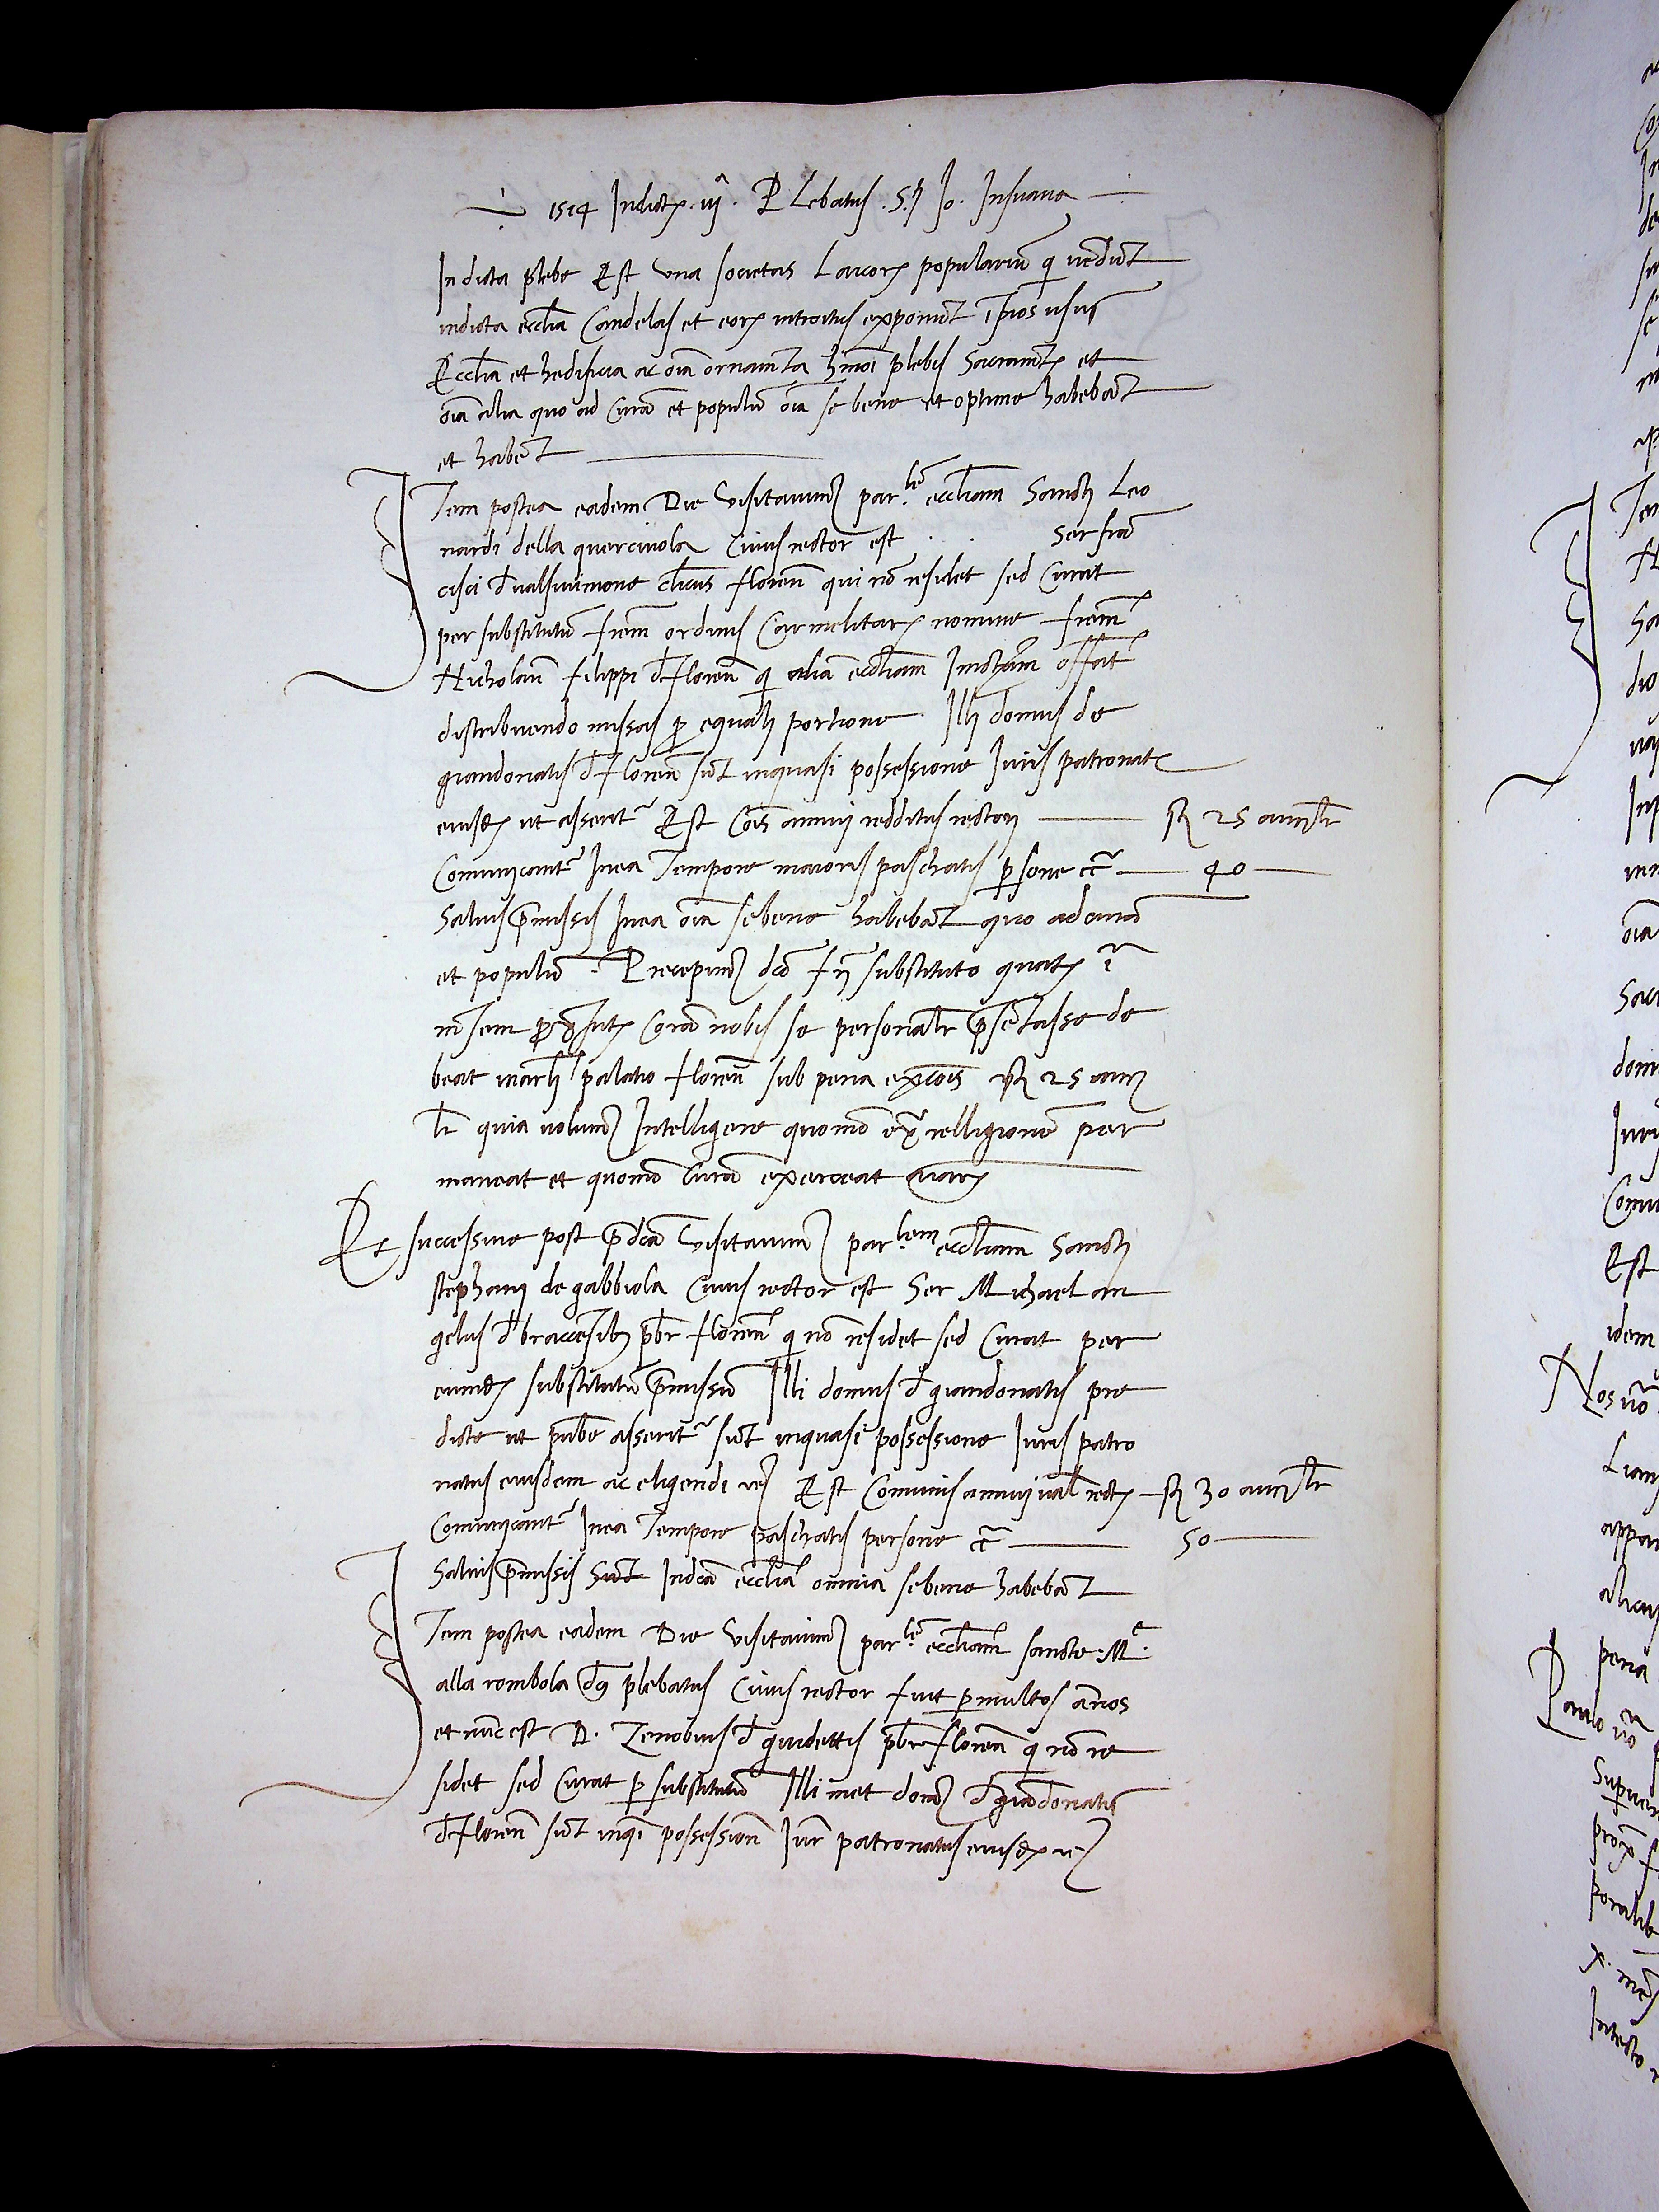 1514 Indict. iij. PLebatus. S.ti Jo. Insuana
In dicta plebe Est vna societas Laicor. popularium q vendunt
indicta ecclia Candelas et eor. introitus exponunt i pios usus
Ecclia et hedificia ac oia ornamta hmoi plebis Sacramt. et
oia alia quo ad Cura et populu oia se bene et optime habebat
et habent
Item postea eadem Die Visitauimus par.le eccliam Sancti Leo
nardi della quercivola Cuius rector est . . ser fra
cisci d ualsinimone clicus floren qui no residet sed Curat
per substitutu frem ordinis Carmelitar. nomine frem
Nicholaum filippi d Floren q alia eccliam offat
distribuendo missas p equali portione Illi domus de
giandonatis d Floren sut inquasi possessione Juris patronat.
eiusd. ut asserit Est Cois annuij redditus rectori st 25 aur lr
Comunicant Inea Tempore maioris paschatis psone cc 40
Saluis pmissis Inea oia se bene habebat quo ad cura
et populu. Precepimus dco fri substituto quat. i
Coram nobis se personalr psetasse de
beat inarchi palatio floren sub pena excois st 25 aur
lr quia uolumus Intelligere quomo ex relligione per
maneat et quomo Cura experceat
Et successiue post pdca Visitauimus par.lem eccliam Sancti
stephani de gabbiola Cuius rector est Ser Michael an
gelus d braccesib pbr floren q no residet sed Curat per
eumd. substitutu pmissu Illi domus d giandonatis pre
dicte ut asserit sut inquasi possessione Juris patro
natus eiusdem ac eligendi re Est Comunis annuij ual rect. st 30 aur lr
Comunicant Inea Tempore paschatis persone cc 50
Saluis pmissis Indca ecclia omnia se bene habebat
Item postea eadem Die Visitauimus par.le eccliam sancte. Me.
alla rombola plebatus Cuius rector fuit p multos annos
et nuc est D. Zenobius d guidettis pbr floren q no re
sidet sed Curat p substitutu Illi met domus d giadonatis
d Floren sut inqi possession Jur patronatus eiusd. re